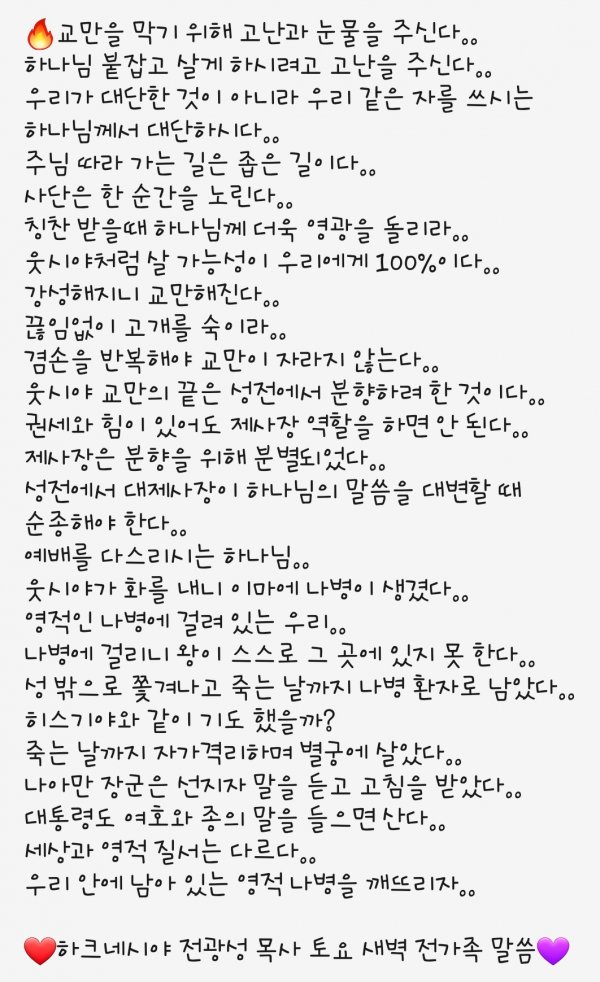 🔥교만을 막기 위해 고난과 눈물을 주신다。。
하나님 붙잡고 살게 하시려고 고난을 주신다。。
우리가 대단한 것이 아니라 우리 같은 자를 쓰시는
하나님께서 대단하시다。。
주님 따라 가는 길은 좁은 길이다。。
사단은 한 순간을 노린다。。
칭찬 받을때 하나님께 더욱 영광을 돌리라。。
웃시야처럼 살 가능성이 우리에게 100%이다。。
강성해지니 교만해진다。。
끊임없이 고개를 숙이라。。
겸손을 반복해야 교만이 자라지 않는다。。
웃시야 교만의 끝은 성전에서 분향하려 한 것이다。。
권세와 힘이 있어도 제사장 역할을 하면 안 된다。。
제사장은 분향을 위해 분별되었다。。
성전에서 대제사장이 하나님의 말씀을 대변할 때
순종해야 한다。。
예배를 다스리시는 하나님。。
웃시야가 화를 내니 이마에 나병이 생겼다。。
영적인 나병에 걸려 있는 우리。。
나병에 걸리니 왕이 스스로 그 곳에 있지 못 한다。。
성 밖으로 쫓겨나고 죽는 날까지 나병 환자로 남았다。。
히스기야와 같이 기도 했을까?
죽는 날까지 자가격리하며 별궁에 살았다。。
나아만 장군은 선지자 말을 듣고 고침을 받았다。。
대통령도 여호와 종의 말을 들으면 산다。。
세상과 영적 질서는 다르다。。
우리 안에 남아 있는 영적 나병을 깨뜨리자。。
❤️하크네시야 전광성 목사 토요 새벽 전가족 말씀💜